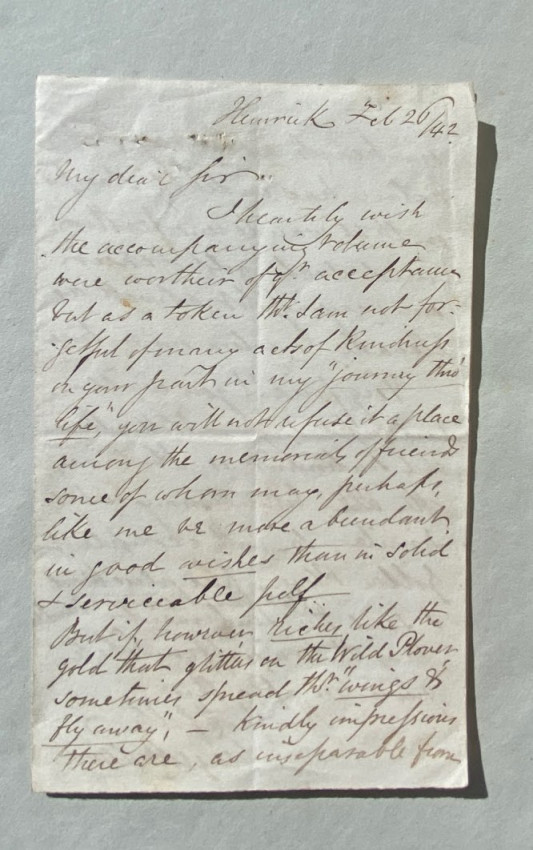 Henrick Feb 26/42
My dear Sir
I heartily wish
the accompanying volume
were worthier of yr. acceptance
but as a token tht. I am not for-
-getful of many acts of Kindness
on your part in my "journey thro'
life," you will not refuse it a place
among the memorials of friends
some of whom may, perhaps,
like me be more abundant
in good wishes than in solid
& serviceable pelf
But if, however riches, like the
gold that glitters on the Wild Plover
sometimes spread thr. "wings &
fly away", — Kindly impressions
there are, as inseparable from